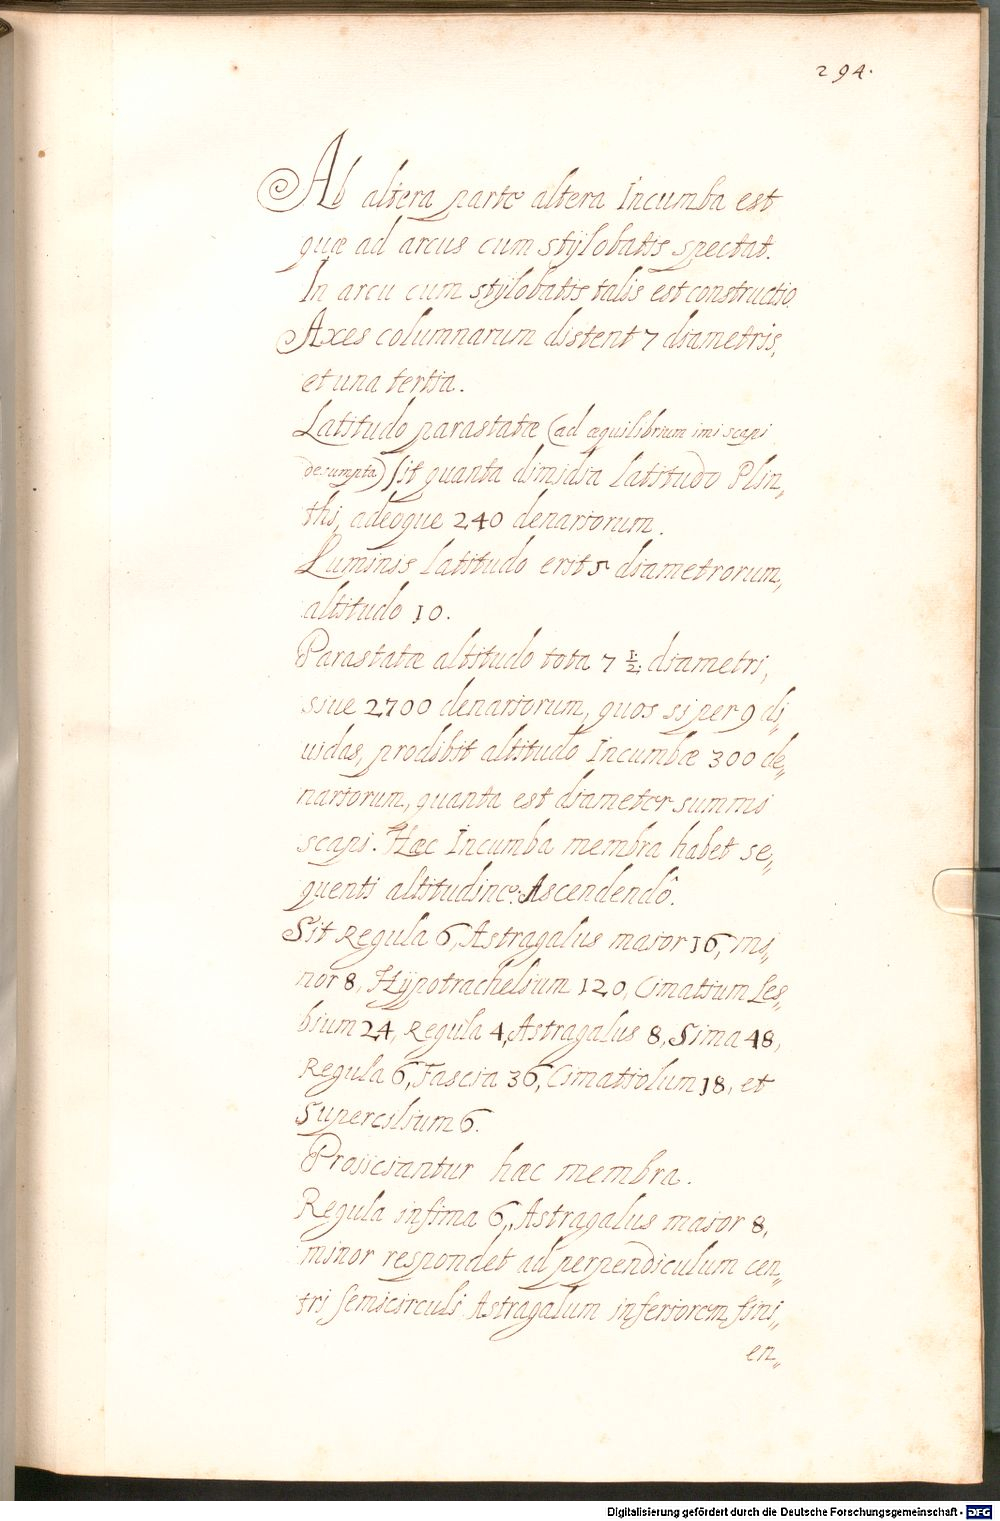 294.
Ab altera parte altera Incumba est
quæ ad arcus cum stylobatis spectat.
In arcu cum stylobatis talis est constructio.
Axes columnarum distent 7 diametris,
et una tertia.
Latitudo parastatæ (ad æquilibrium imi scapi
desumpta) sit quanta dimidia latitudo Plin„
thi, adeoque 240 denariorum.
Luminis latitudo erit 5 diametrorum,
altitudo 10.
Parastatæ altitudo tota 7 1/2 diametri,
siue 2700 denariorum, quos si per 9 di„
uidas, prodibit altitudo Incumbæ 300 de„
nariorum, quanta est diameter summi
scapi. Hæc Incumba membra habet se„
quenti altitudine: Ascendendô.
Sit Regula 6, Astragalus maior 16, mi„
nor 8, Hypotrachelium 120, Cimatium Les„
bium 24, Regula 4, Astragalus 8, Sima 48,
Regula 6, Fascia 36, Cimatiolum 18, et
Supercilium 6.
Proijciantur hæc membra.
Regula infima 6, Astragalus maior 8,
minor respondet ad perpendiculum cen„
tri semicirculi Astragalum inferiorem fini„
en„
Digitalisierung gefördert durch die Deutsche Forschungsgemeinschaft - DFG